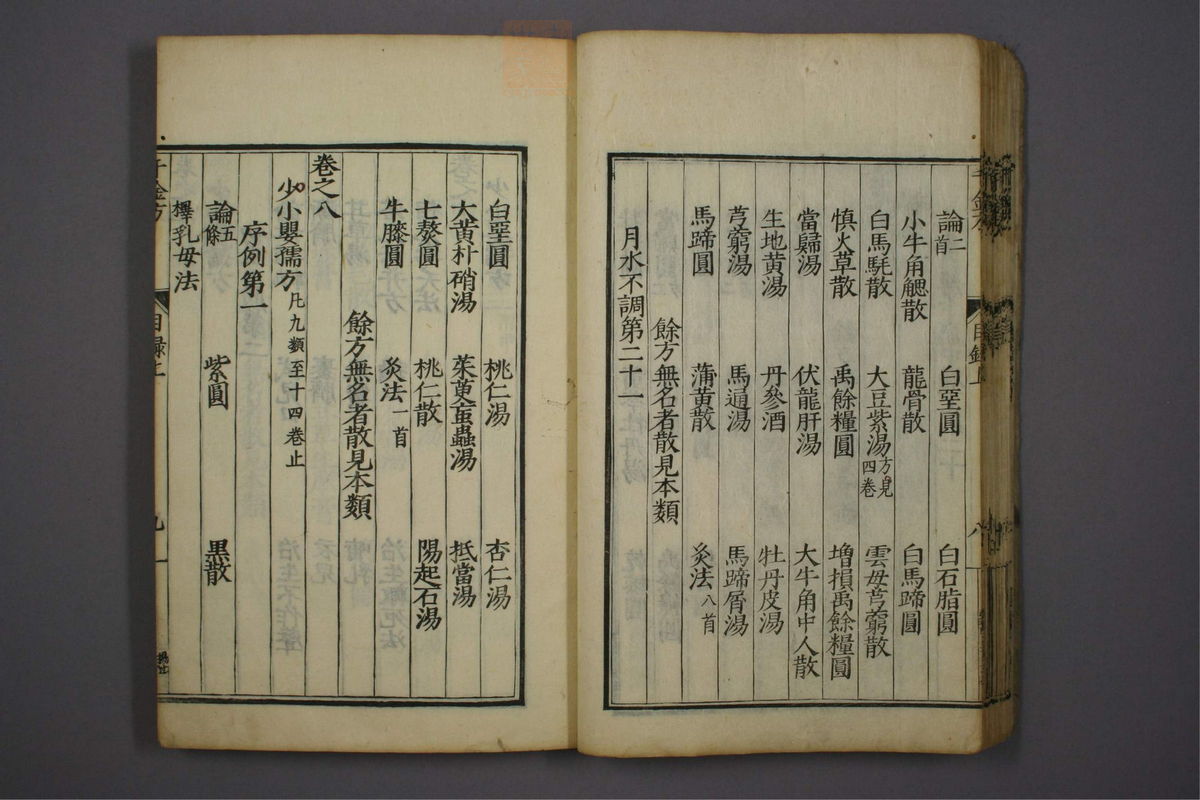 論二首 白堊圓 白石脂圓
小牛角䚡散 龍骨散 白馬蹄圓
白馬𩭤散 大豆紫湯方見四卷 雲母芎藭散
慎火草散 禹餘糧圓 增損禹餘糧圓
當歸湯 伏龍肝湯 大牛角中人散
生地黄湯 丹參酒 牡丹皮湯
芎藭湯 馬通湯 馬蹄屑湯
馬蹄圓 蒲黄散 灸法八首
餘方無名者散見本類
月水不調第二十一
白堊圓 桃仁湯 杏仁湯
大黄朴硝湯 茱萸䖟蟲湯 抵當湯
七熬圓 桃仁散 陽起石湯
牛膝圓 灸法一首
餘方無名者散見本類
卷之八
少小嬰孺方凡九類至十四卷止
序例第一
論五條 紫圓 黒散
擇乳母法
千金方 目録上 九